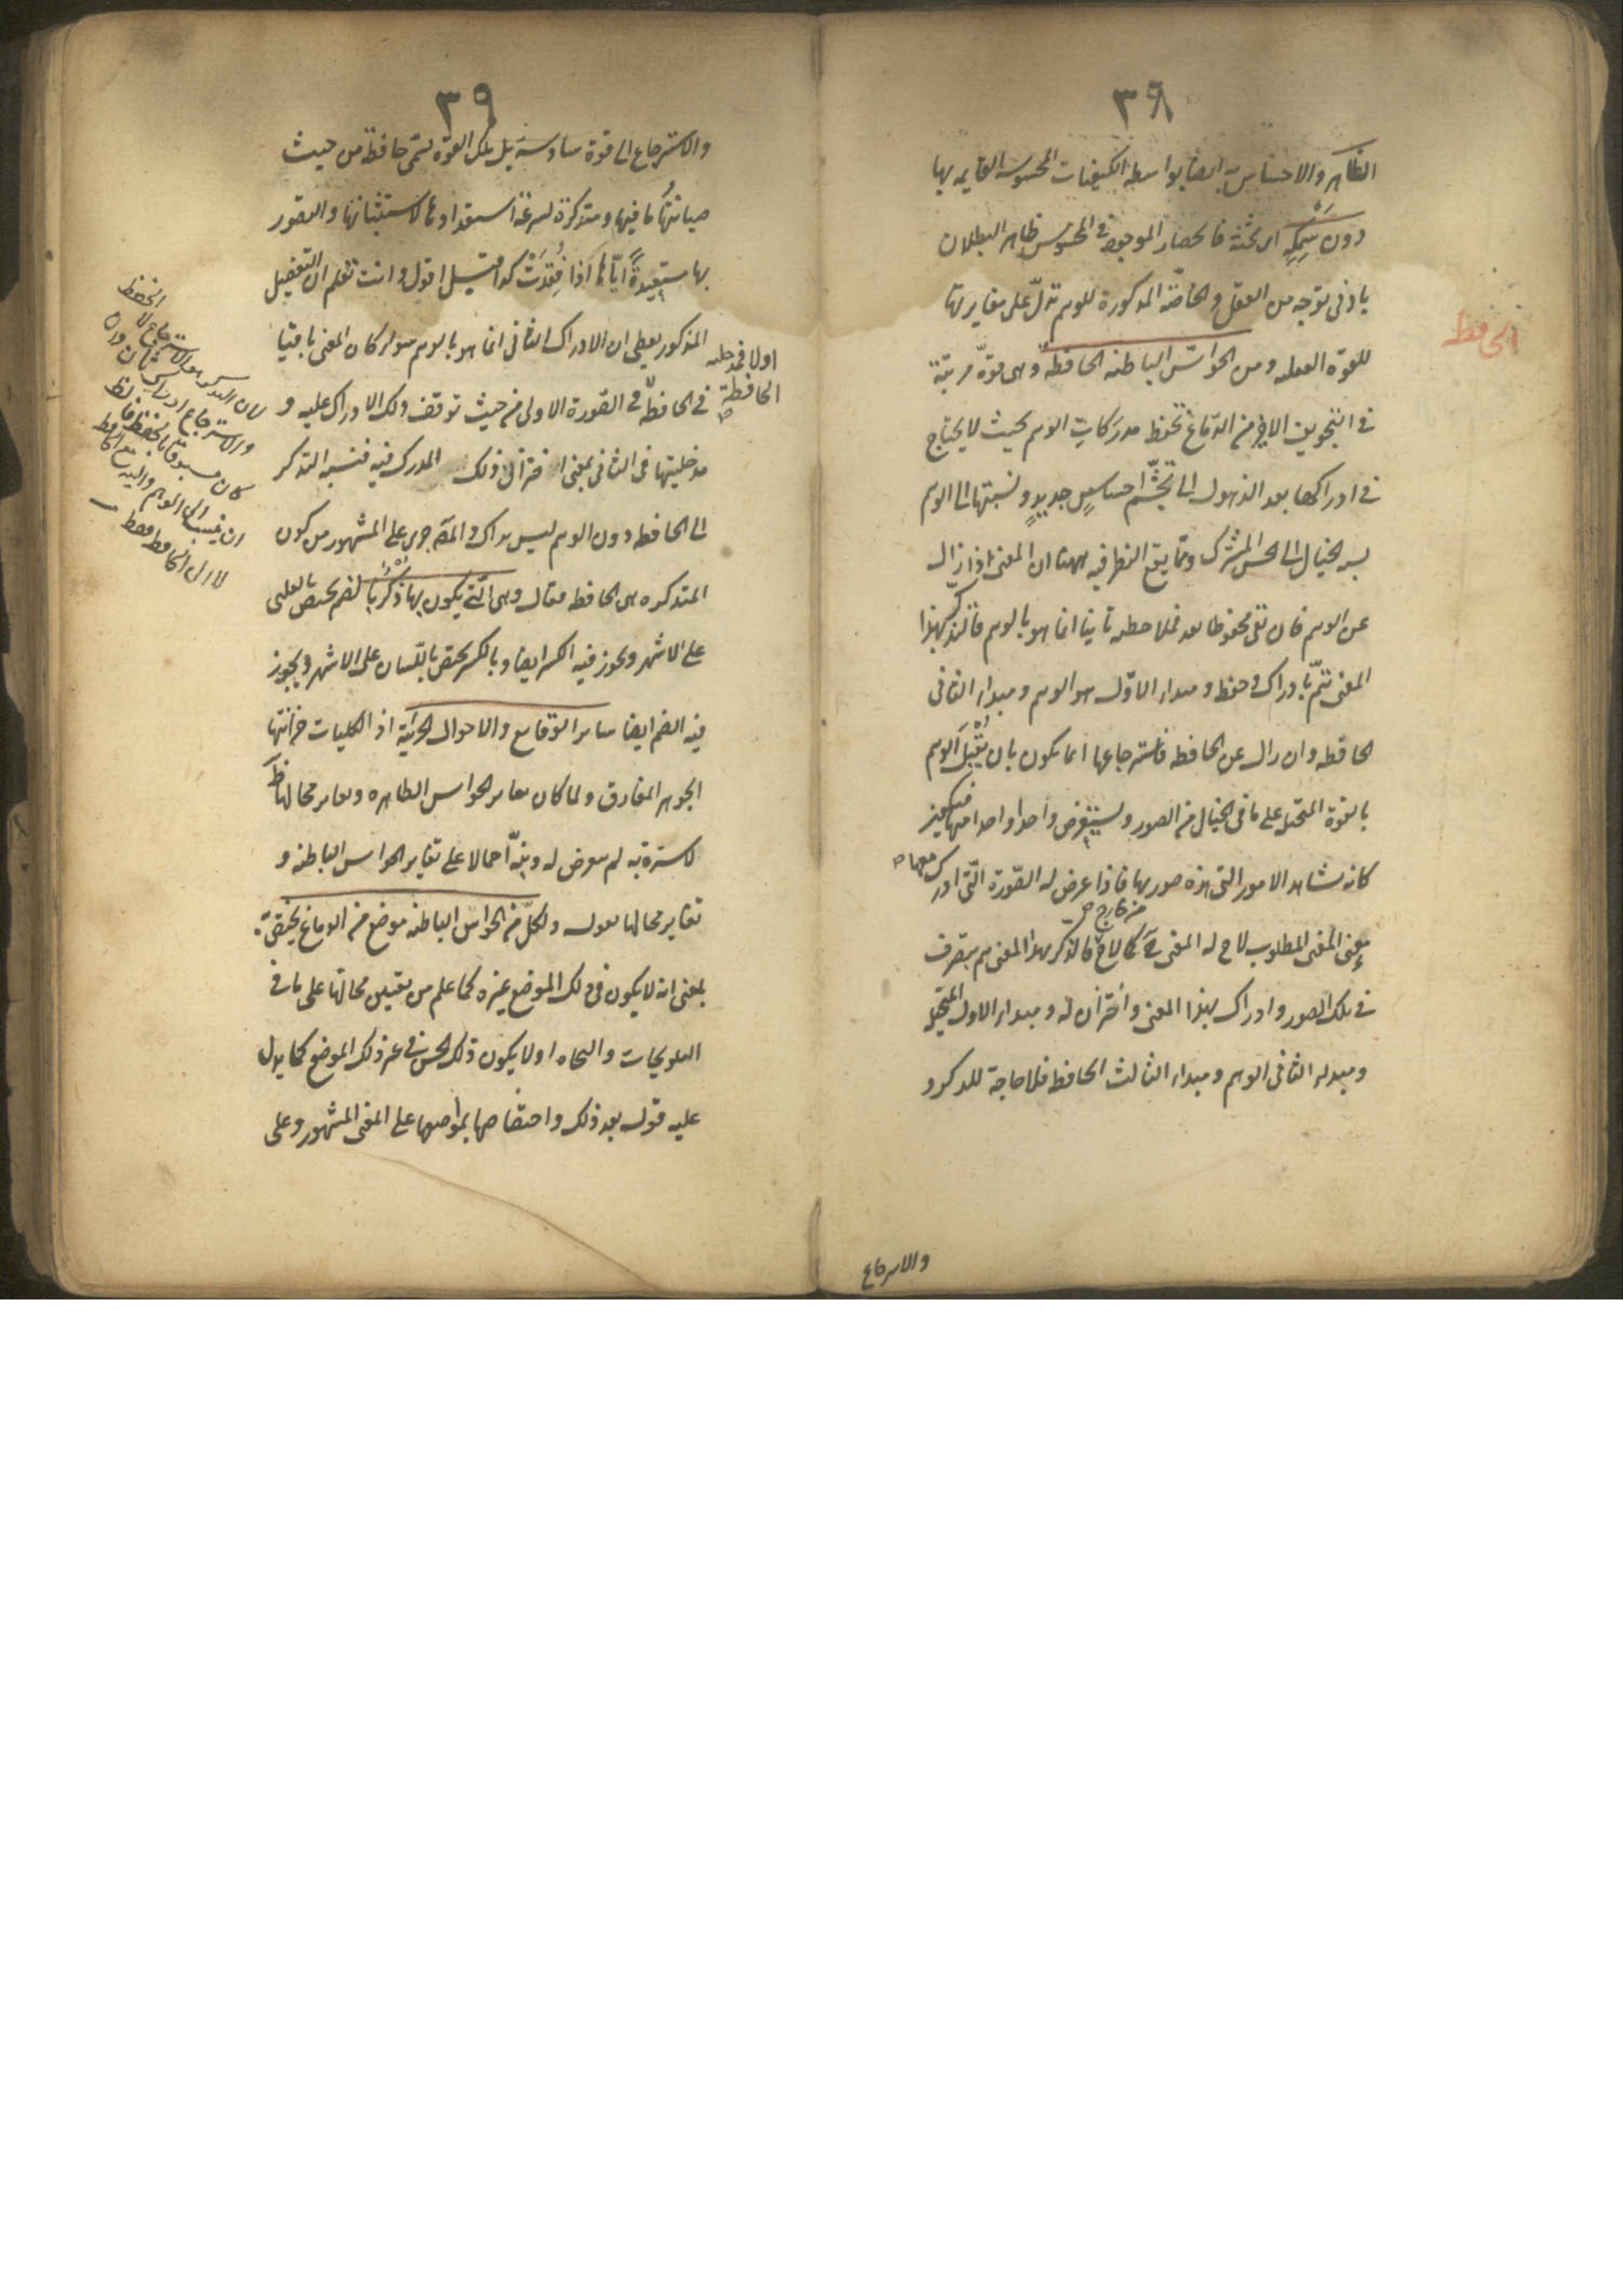 ٣٨
الظاهر والاحساس به ايضا بواسطه الكيفيات المحسوسة القايمه بها
دون سَمكِهِ اى ثخنه فانحصار الموجود فى المحسوس ظاهر البطلان
بادنى توجه من العقل والخاصّة المذكورة للوهم تدلّ على مغايرتها
للقوة العقلية ومن الحواسّ الباطنه الحافظة وهى قوة مرتبة
الحافظ
فى التجويف الاخير من الدماغ تحفظ مدركات الوهم بحيث لا يحتاج
فى ادراكها بعد الذهول الى تجشّم احساسٍ جديدٍ ونسبتها الى الوهم
نسبة الخيال الى الحس المشترك ومما يقع النظر فيه ههنا ان المعنى اذا زال
عن الوهم فان بقى محفوظا بعد فملاحظته ثانيا انما هو بالوهم فالتذكر لهذا
المعنى يتمّ بادراك وحفظ ومبداء الاوّل هو الوهم ومبداء الثانى
الحافظه وان زال عن الحافظه فاسترجاعها انما يكون بان يُقْبِلَ الوهم
بالقوة المتخيله على ما فى الخيال من الصور ويستعرض واحدا واحدا منها
كانه يشاهد الامور التى هذه صورها فاذا عرض له الصّورة التى ادرك معها
المعنى المطلوب لاح له المعنى ح كما لاح من خارج فالتذكر بهذا المعنى يتم بتصرف
فى تلك الصور وادراك لهذا المعنى واختزان له ومبداء الاول المتخيلة
ومبداء الثانى الوهم ومبداء الثالث الحافظ فلا حاجة للذكر و
والاسرجاع
٣٩
والاسترجاع الى قوة سادسة بل تلك القوّة تسمّى حافظة من حيث
صيانتها ما فيها ومتذكرة لسرعة استعدادها لاستثباتها والتصور
بها مستعيدةً ايّاها اذا فُقِدَتْ كذا قيل اقول وانت تعلم ان التفصيل
المذكور يعطى ان الادراك الثانى انما هو بالوهم سواء كان المعنى باقيا
اولا فمدخلية
الحافظة
فى الحافظة فى الصّورة الاولى من حيث توقف ذلك الادراك عليه و
مدخليتها فى الثانى بمعنى اختزان ذلك المدرك فيه فنسبة التذكر
الى الحافظه دون الوهم ليس بذاك والمصَ جرى على المشهور من كون
المتذكره هى الحافظه فقال وهى الّتى يكون بها ذُكْرُنا بالضم يختص بالقلب
على الاشهر ويجوز فيه الكسر ايضا وبالكسر يختص باللسان على الاشهر ويجوز
فيه الضم ايضا سايرَ الوقايع والاحوال الجزئية اذ الكليات خزانتها
الجوهر المفارق ولما كان تغاير الحواس الظاهره وتغاير محالها ظَ
لا سترة به لم يتعرض له ونبّه اجمالا على تغاير الحواس الباطنه و
تغاير محالها بقوله ولكلّ من الحواس الباطنه موضع من الدماغ يختصّ به
بمعنى انه لا يكون فى ذلك الموضع غيره كما علم من تعيين محالها على ما فى
التلويحات والنجاه او لا يكون ذلك الحس فى غير ذلك الموضع كما يدل
عليه قوله بعد ذلك واختصاصها بمواضعها على المعنى المشهور وعلى
لان التذكر هو الاسترجاع لا الحفظ
والاسترجاع ادراك ثان وان
كان مسبوقا بالحفظ
ان ينسب الى الوهم